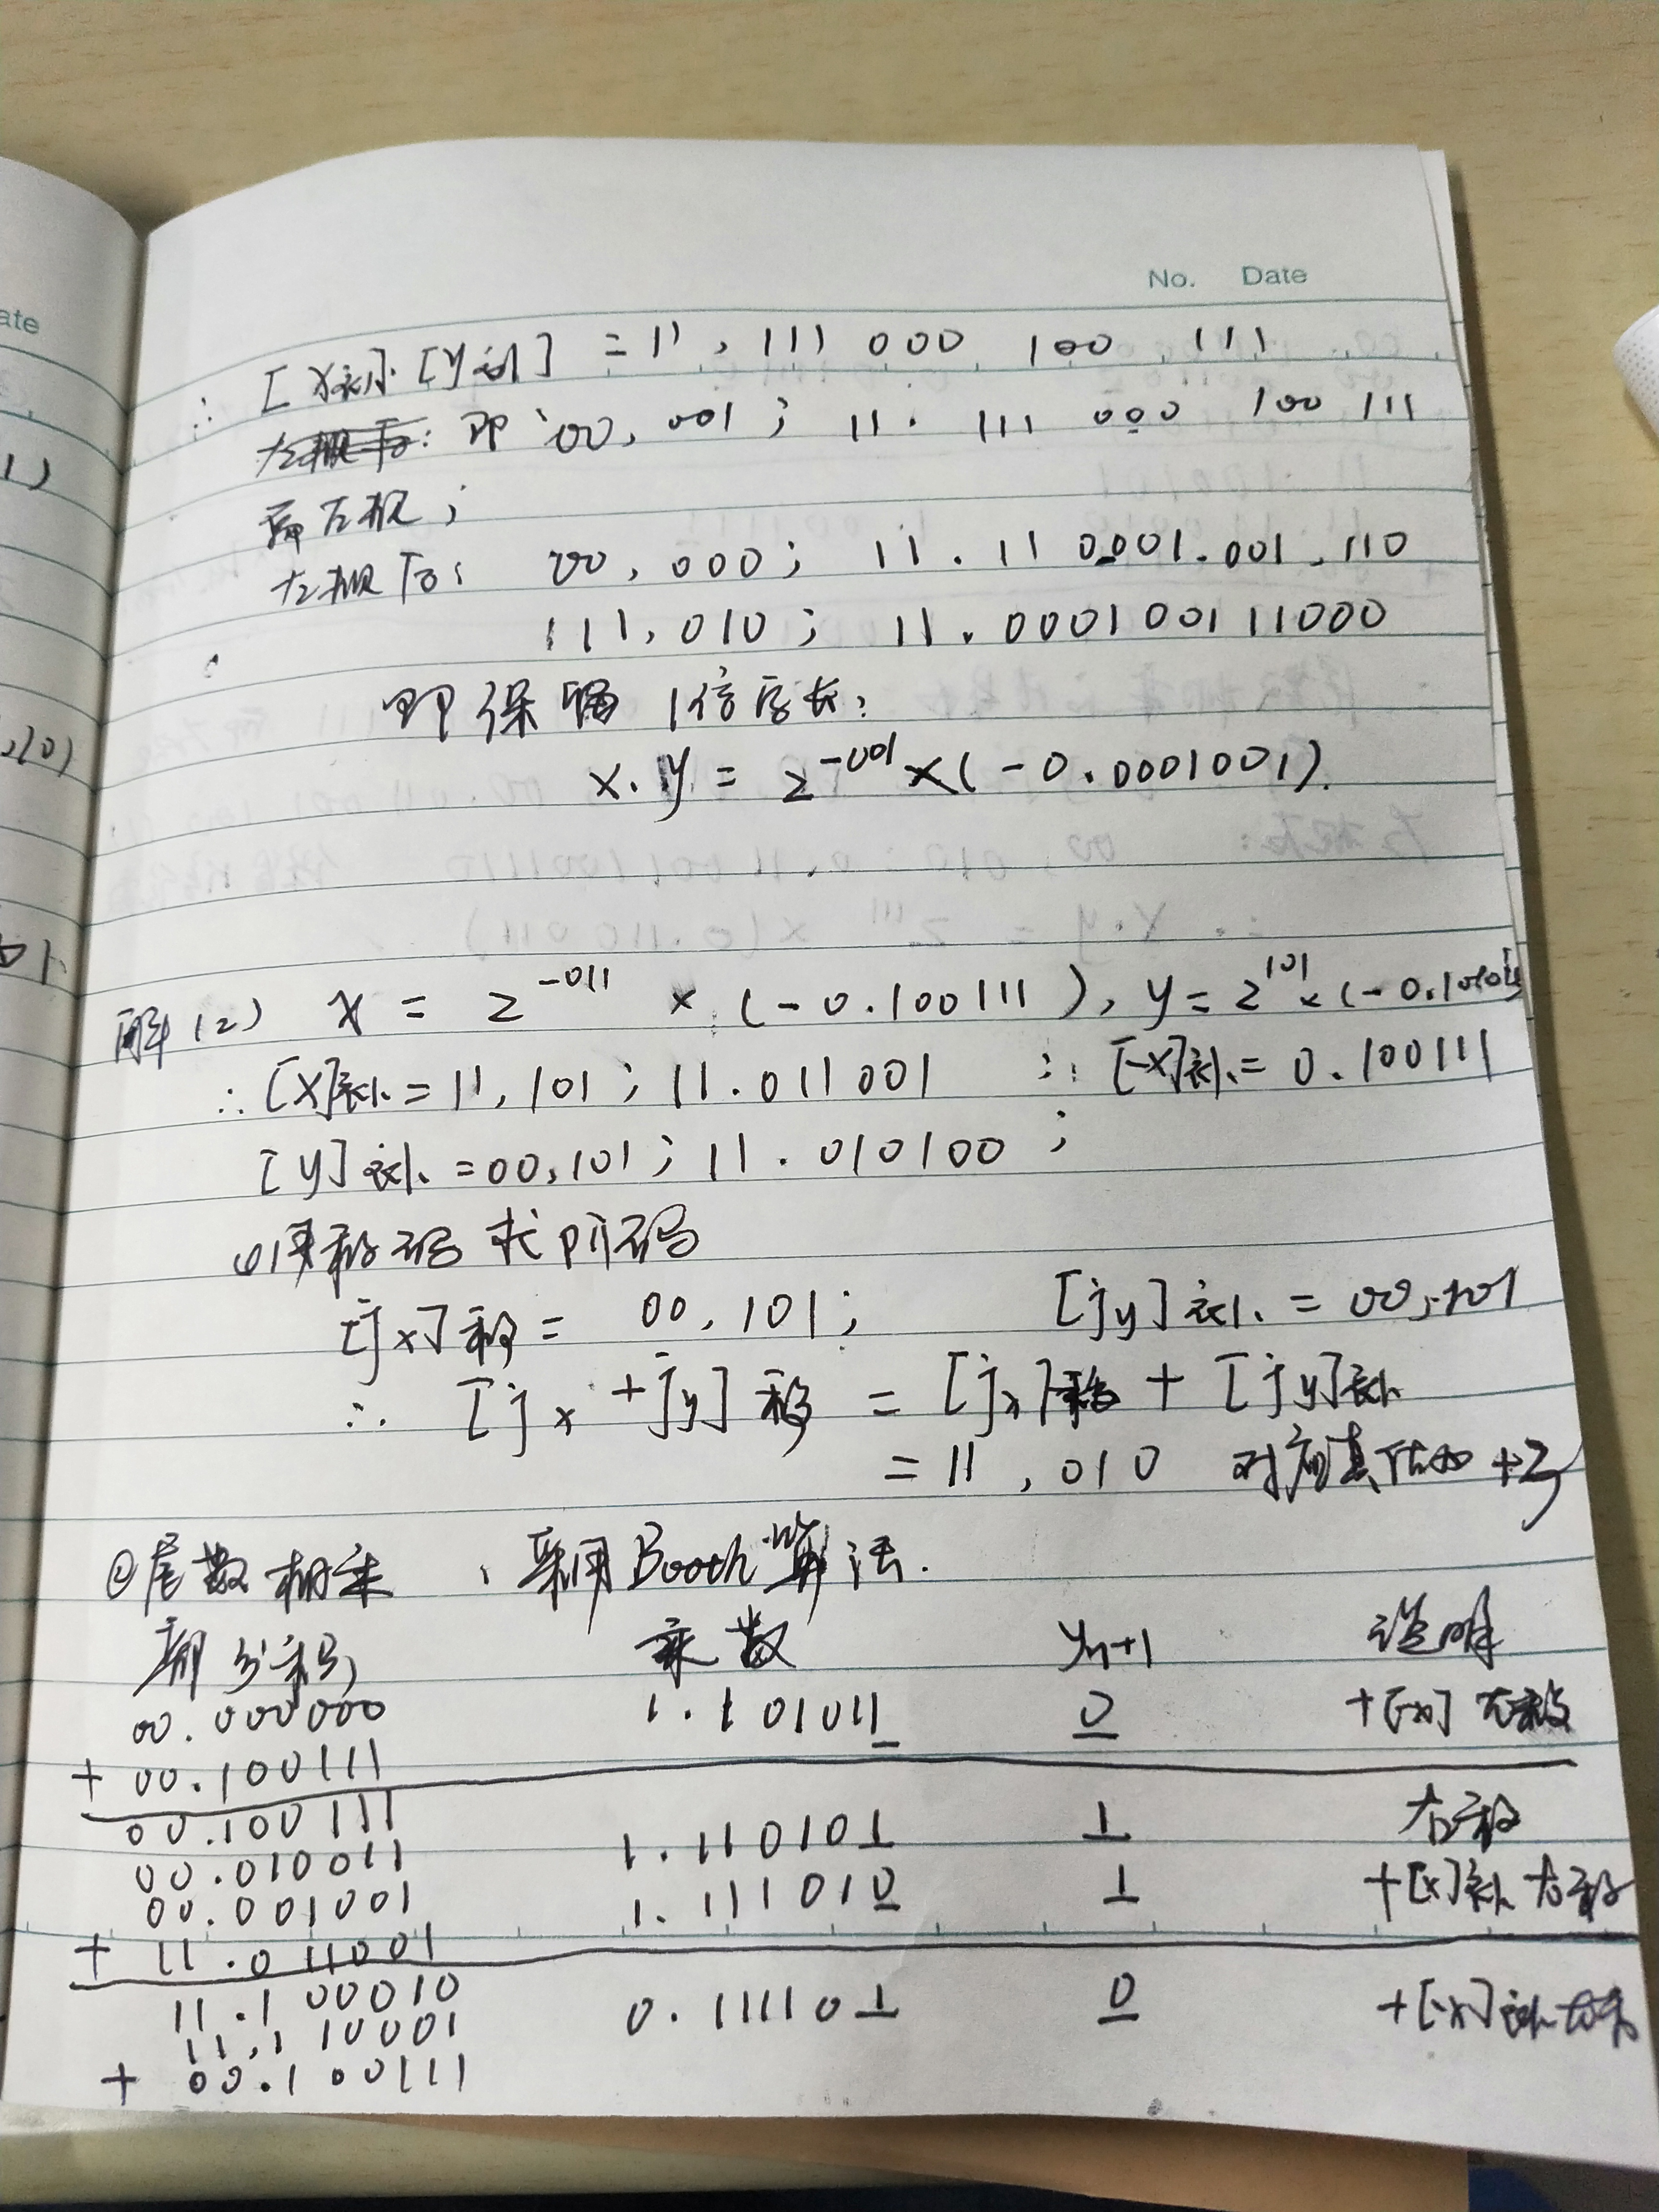 No. Date
∴ [X补]·[Y补] = 11, 111 000 100 111
即 00, 001; 11. 111 000 100 111
需左规;
左规后: 00, 000; 11. 11 0001.001.110
111,010; 11.000100111000
即保留1倍字长:
x·y = 2^-001 × (-0.0001001).
解(2) x = 2^-011 × (-0.100111), y = 2^101 × (-0.1010
∴ [X]补 = 11, 101; 11.011001 ∴ [-X]补 = 0.100111
[y]补 = 00,101; 11.010100;
①用移码求阶码
[jx]移 = 00, 101; [jy]补 = 00,101
∴ [jx + jy]移 = [jx]移 + [jy]补
= 11, 010 对应真值为 +2
②尾数相乘, 采用Booth算法.
部分积 乘数 yn+1 说明
00.000000 1.101011 0 +[-x] 右移
+ 00.100111
00.100111
00.010011 1.110101 1 右移
00.001001 1.111010 1 +[x]补 右移
+ 11.011001
11.100010
11.110001 0.111101 0 +[-x]补 右移
+ 00.100111
ate
1)